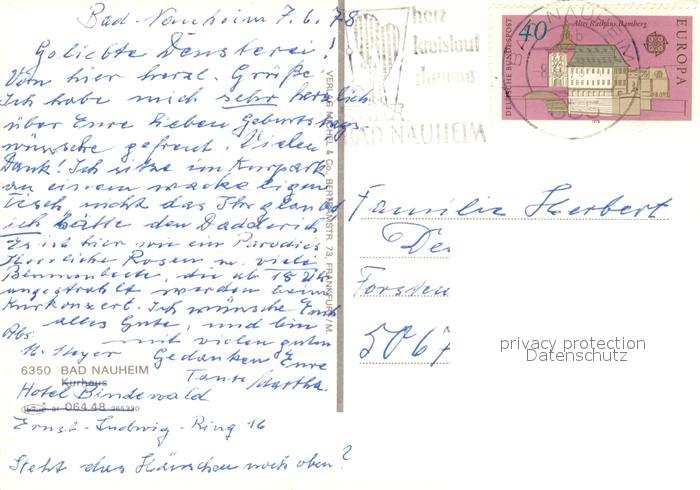 Bad-Nauheim 7.6.78
Geliebte Densterei!
Von hier herzl. Grüße.
Ich habe mich sehr herzlich
über Eure lieben Geburtstags
wünsche gefreut. Vielen
Dank! Ich sitze im Kurpark
an einem wackeligen
Tisch, nicht das Ihr glaubt
ich hätte den Dadderich
Es ist hier wie ein Paradies
Herrliche Rosen u. viele
Blumenbeete, die ab 15 Uhr
angestrahlt werden beim
Kurkonzert. Ich wünsche Euch
alles Gute, und bin
Abs. mit vielen guten
M. Meyer Gedanken Eure
6350 BAD NAUHEIM Tante Martha.
Kurhaus
Hotel Bindewald
064 48 365330
Ernst-Ludwig-Ring 16
Steht das Häuschen noch oben?
VERLAG MICHEL & Co., BERTRAMSTR. 73, FRANKFURT/M.
herz
kreislauf
rheuma
BAD NAUHEIM
40
Altes Rathaus Bamberg
DEUTSCHE BUNDESPOST
EUROPA
Familie Herbert
De
Forsten
5067
privacy protection
Datenschutz